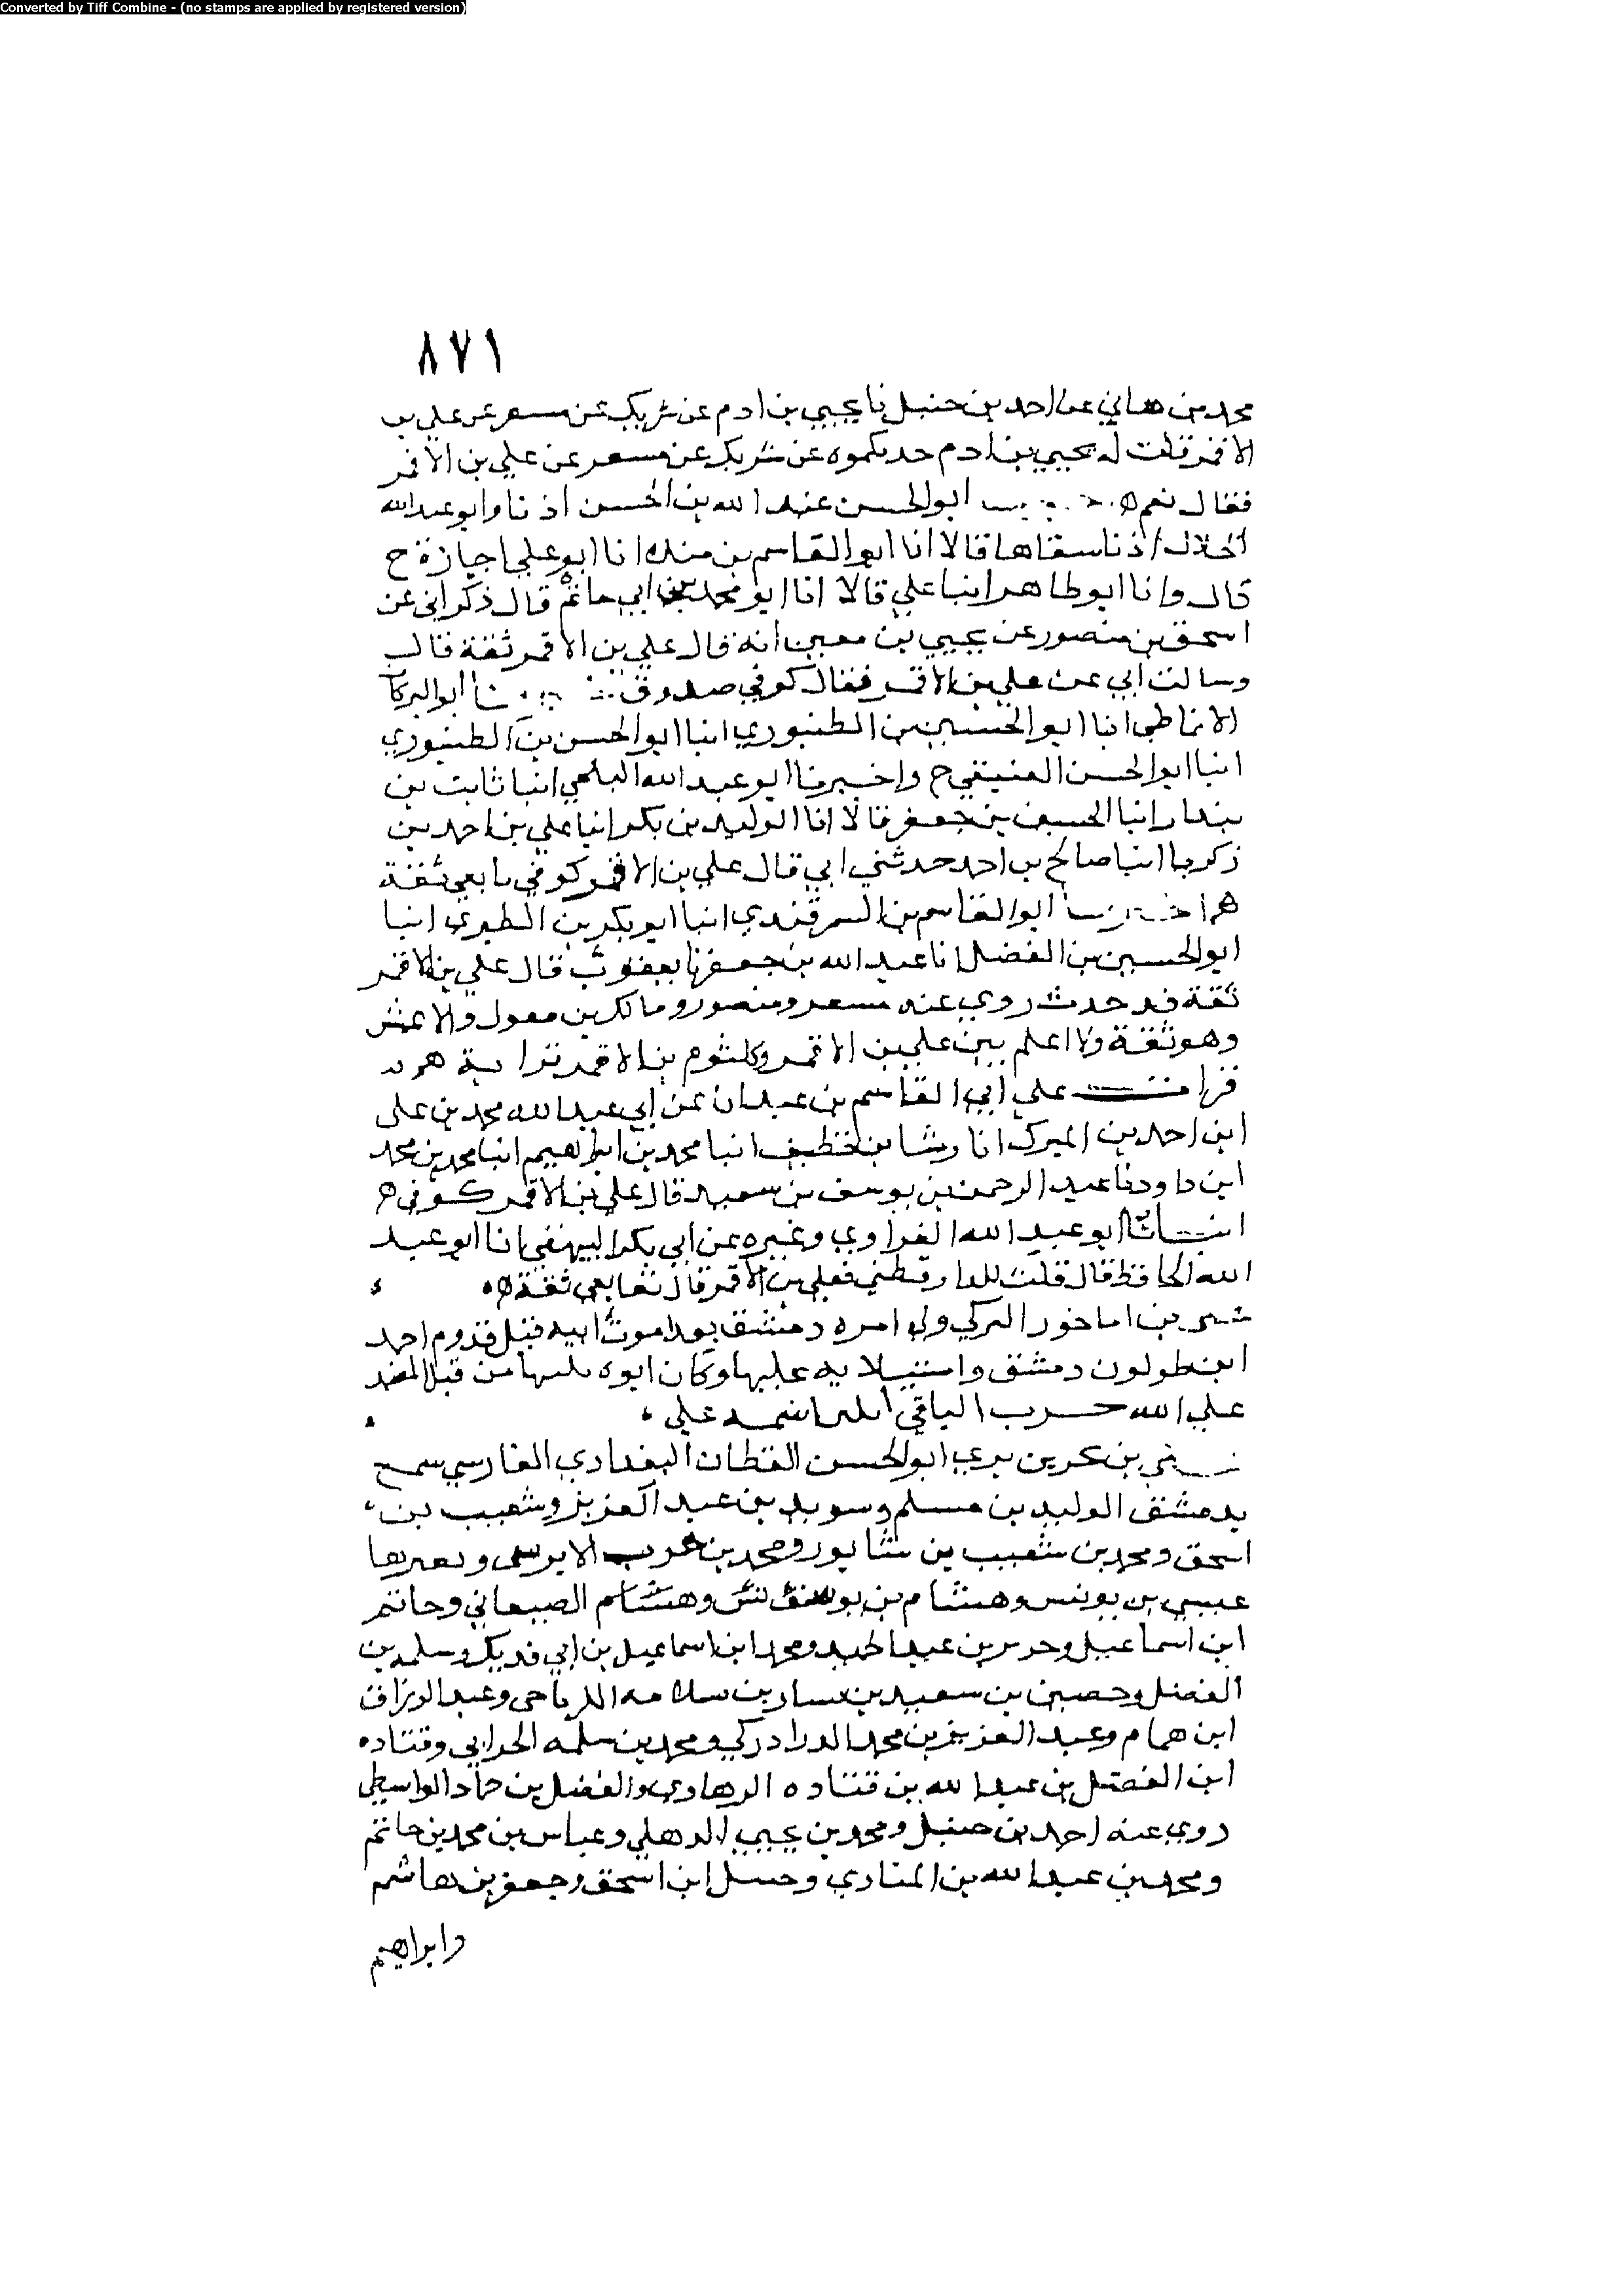 Converted by Tiff Combine - (no stamps are applied by registered version)
٨٧١
محمد بن هاني عن احمد بن حنبل نا يحيي بن ادم عن شريك عن مسعر عن علي بن
الاقمر قلت له يحيي بن ادم حدثكموه عن شريك عن مسعر عن علي بن الاقمر
فقال نعم ه ابو الحسن عبد الله بن الحسن اذنا وابو عبد الله
الخلال اذنا سقاها قالا انا ابو القاسم بن منده انا ابو علي اجازة ح
قال وانا ابو طاهر انبا علي قالا انا ابو محمد بن ابي حاتم قال ذكر ابي عن
اسحق بن منصور عن يحيي بن معين انه قال علي بن الاقمر ثقة قال
وسالت ابي عن علي بن الاقمر فقال كوفي صدوق نا ابو البركا
الانماطي انبا ابو الحسين بن الطنبوري انبا ابو الحسن بن الطنبوري
انبا ابو الحسن العتيقي ح واخبرنا ابو عبد الله البلخي انبا ثابت بن
بندار انبا الحسين بن جعفر قالا انا الوليد بن بكر انبا علي بن احمد بن
زكريا انبا صالح بن احمد حدثني ابي قال علي بن الاقمر كوفي تابعي ثقة
ه ابو القاسم بن السمرقندي انبا ابو بكر بن الطبري انبا
ابو الحسين بن الفضل انا عبد الله بن جعفر نا يعقوب قال علي بن الاقمر
ثقة قد حدث روي عنه مسعر ومنصور ومالك بن مغول والاعمش
وهو ثقة ولا اعلم بين علي بن الاقمر وكلثوم بن الاقمر قرابة
قرات علي ابي القاسم بن عبدان عن ابي عبد الله محمد بن علي
ابن احمد بن المبرك انا رشا بن نظيف انبا محمد بن ابراهيم انبا محمد بن محمد
ابن داود نا عبد الرحمن بن يوسف بن سعيد قال علي بن الاقمر كوفي ه
انبانا ابو عبد الله الفراوي وغيره عن ابي بكر البيهقي انا ابو عبد
الله الحافظ قال قلت للدارقطني فعلي بن الاقمر قال تابعي ثقة ه
بن اماخور التركي ولي امره دمشق بعد موت ابيه قبل قدوم احمد
ابن طولون دمشق واستيلايه عليها وكان ابوه يليها من قبل المعتمد
علي الله حرب الباقي علي
بن بحر بن بري ابو الحسن القطان البغدادي الفارسي سمع
بدمشق الوليد بن مسلم وسويد بن عبد العزيز وشعيب بن
اسحق ومحمد بن شعيب بن شابور ومحمد بن حرب وبغيرها
عيسي بن يونس وهشام بن يوسف وهشام الصنعاني وحاتم
ابن اسماعيل وجرير بن عبد الحميد ومحمد ابن اسماعيل بن ابي فديك وسلمه بن
الفضل وحصين بن سعيد بن يسار بن سلامه الرياحي وعبد الرزاق
ابن همام وعبد العزيز بن محمد الدرادركي ومحمد بن سلمه الحراني وقتاده
ابن الفضل بن عبد الله بن قتاده الرهاوي والفضل بن حماد الواسطي
روي عنه احمد بن حنبل ومحمد بن يحيي الذهلي وعباس بن محمد بن حاتم
ومحمد بن عبد الله بن المنادي وحنبل ابن اسحق وجعفر بن هاشم
وابراهيم